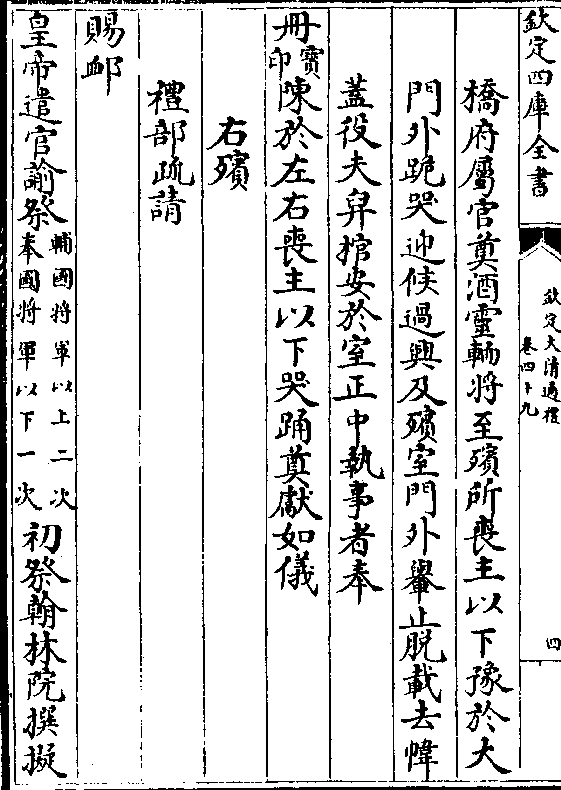 欽定四庫全書
欽定大清通禮
卷四十九
四
橋府屬官奠酒靈輀將至殯所喪主以下豫於大
門外跪哭迎候過興及殯室門外轝止脫載去幃
蓋役夫舁棺安於室正中執事者奉
冊寶印陳於左右喪主以下哭踊奠獻如儀
右殯
禮部疏請
賜䘏
皇帝遣官諭祭輔國將軍以上二次奉國將軍以下一次初祭翰林院撰擬